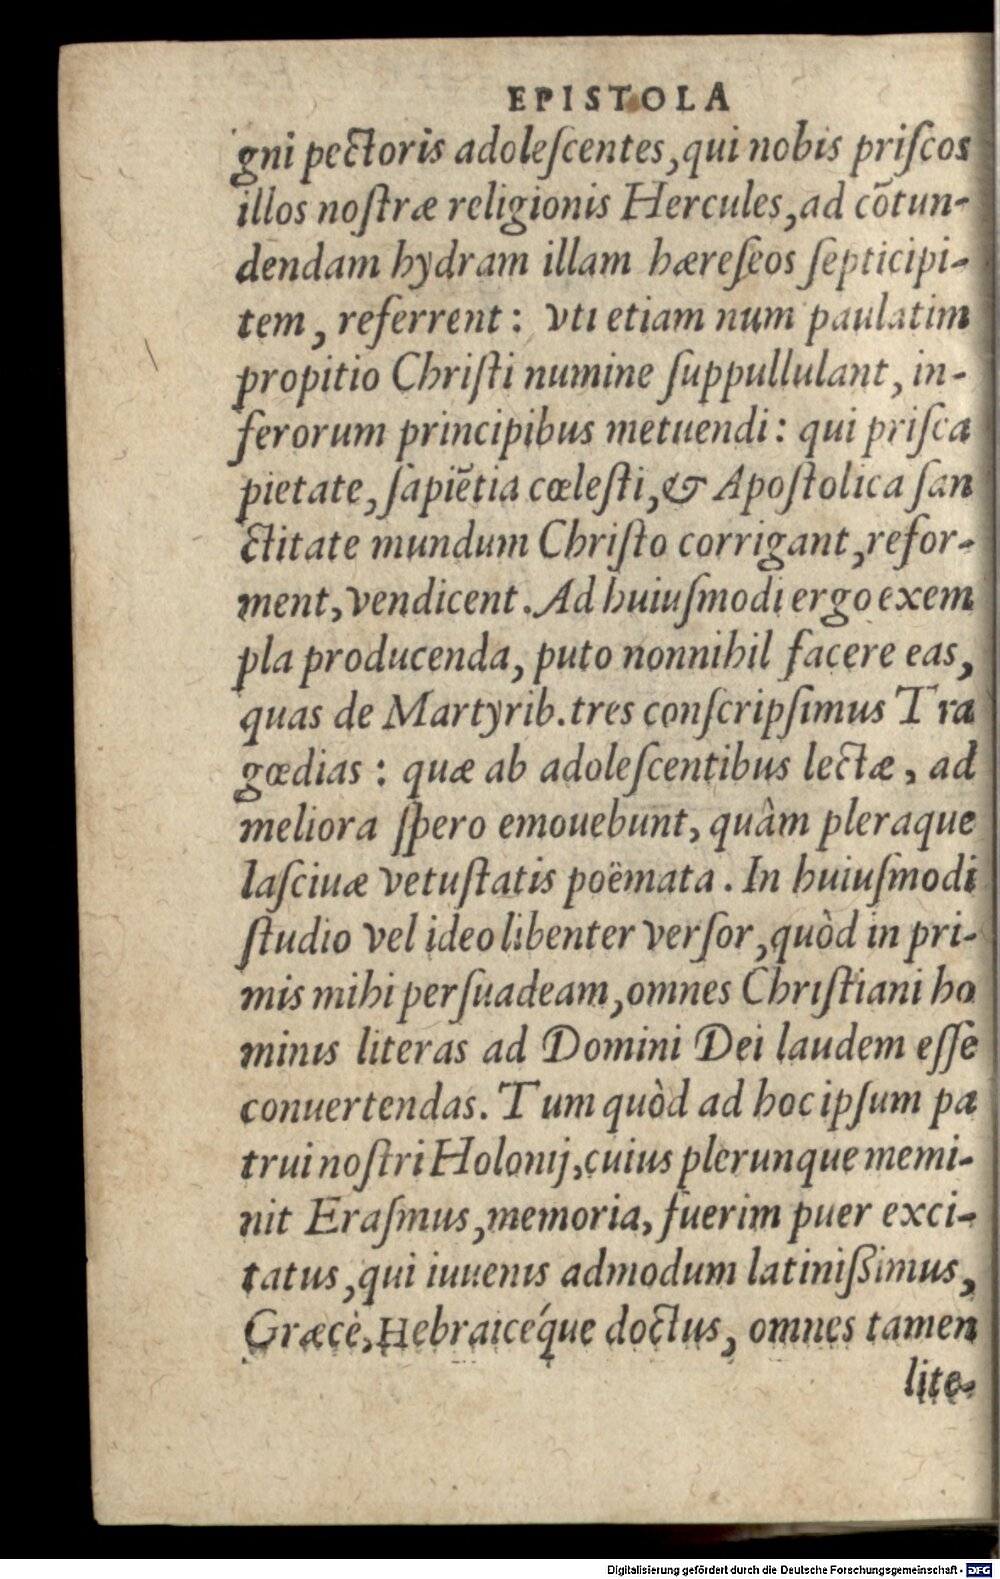 EPISTOLA
gni pectoris adoleſcentes, qui nobis priſcos
illos noſtræ religionis Hercules, ad cõtun-
dendam hydram illam hæreſeos ſepticipi-
tem, referrent: vti etiam num paulatim
propitio Chriſti numine ſuppullulant, in-
ferorum principibus metuendi: qui priſca
pietate, ſapiẽtia cœleſti, & Apoſtolica ſan
ctitate mundum Chriſto corrigant, refor-
ment, vendicent. Ad huiuſmodi ergo exem
pla producenda, puto nonnihil facere eas,
quas de Martyrib. tres conſcripſimus Tra
gœdias: quæ ab adoleſcentibus lectæ, ad
meliora ſpero emouebunt, quàm pleraque
laſciuæ vetuſtatis poëmata. In huiuſmodi
ſtudio vel ideo libenter verſor, quòd in pri-
mis mihi perſuadeam, omnes Chriſtiani ho
minis literas ad Domini Dei laudem eſſe
conuertendas. Tum quòd ad hoc ipſum pa
trui noſtri Holonij, cuius plerunque memi-
nit Eraſmus, memoria, fuerim puer exci-
tatus, qui iuuenis admodum latiniſſimus,
Græcè, Hebraicéque doctus, omnes tamen
lite-
Digitalisierung gefördert durch die Deutsche Forschungsgemeinschaft - DFG